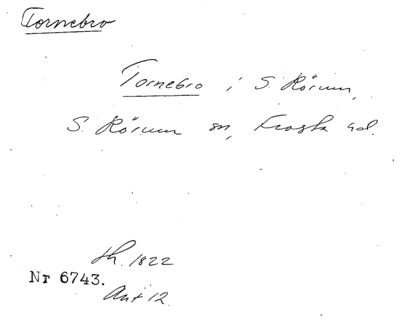 Tornebro
Tornebro i S. Rörum,
S. Rörum sn, Frosta hd.
fh. 1822
Nr 6743.
Ant 12.